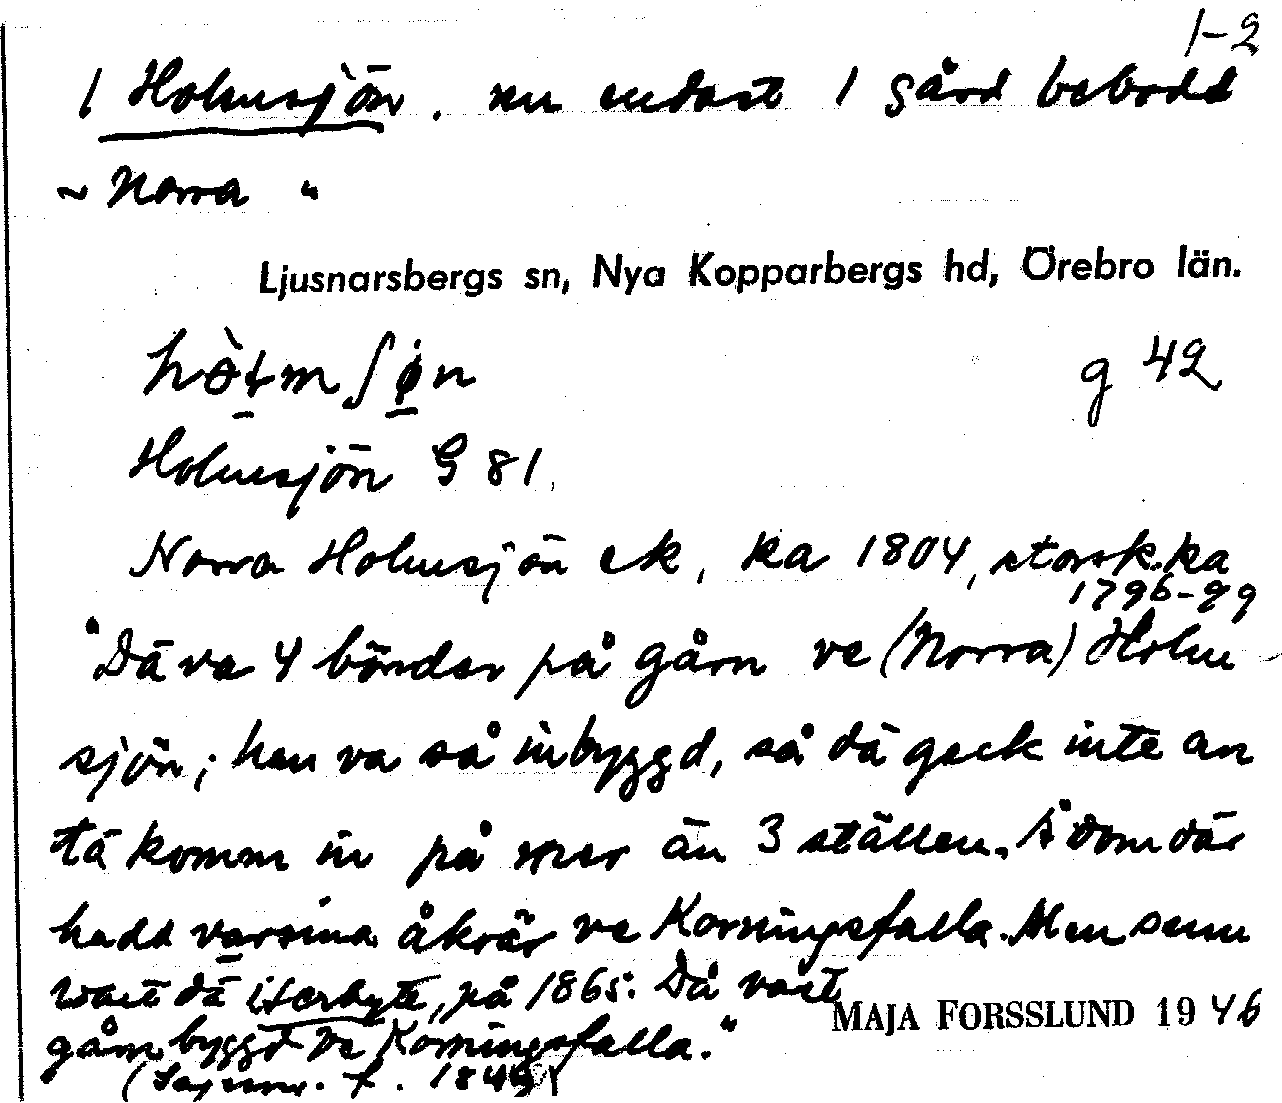 1-2
1 Holmsjön. nu endast 1 gård bebodd
~ Norra "
Ljusnarsbergs sn, Nya Kopparbergs hd, Örebro län.
hòłmʃøn g 42
Holmsjön G 81.
Norra Holmsjön ek, ka 1804, storsk.ka
1796-99
"Dä va 4 bönder på gårn ve (Norra) Holm-
sjön; han va så inbyggd, så dä geck inte an
tä komm in på mer än 3 ställen. Å dom där
hadd varsina åkrär ve Korningsfalla. Men senn
vart dä iterbyte, på 1865. Då vart
gårn byggd ve Korningsfalla."
MAJA FORSSLUND 1946
(Sagesm. f. 1849)